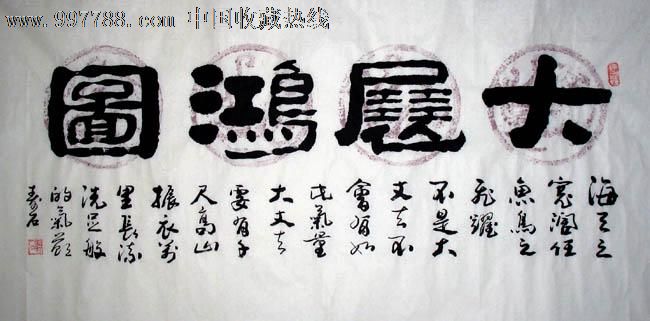 www.997788.com 中国收藏热线
大展鴻圖
海天之
寬闊任
魚鳥之
飛躍
不是大
丈夫不
會有如
此氣量
大丈夫
要有千
尺高山
振衣萬
里長流
洗足般
的氣